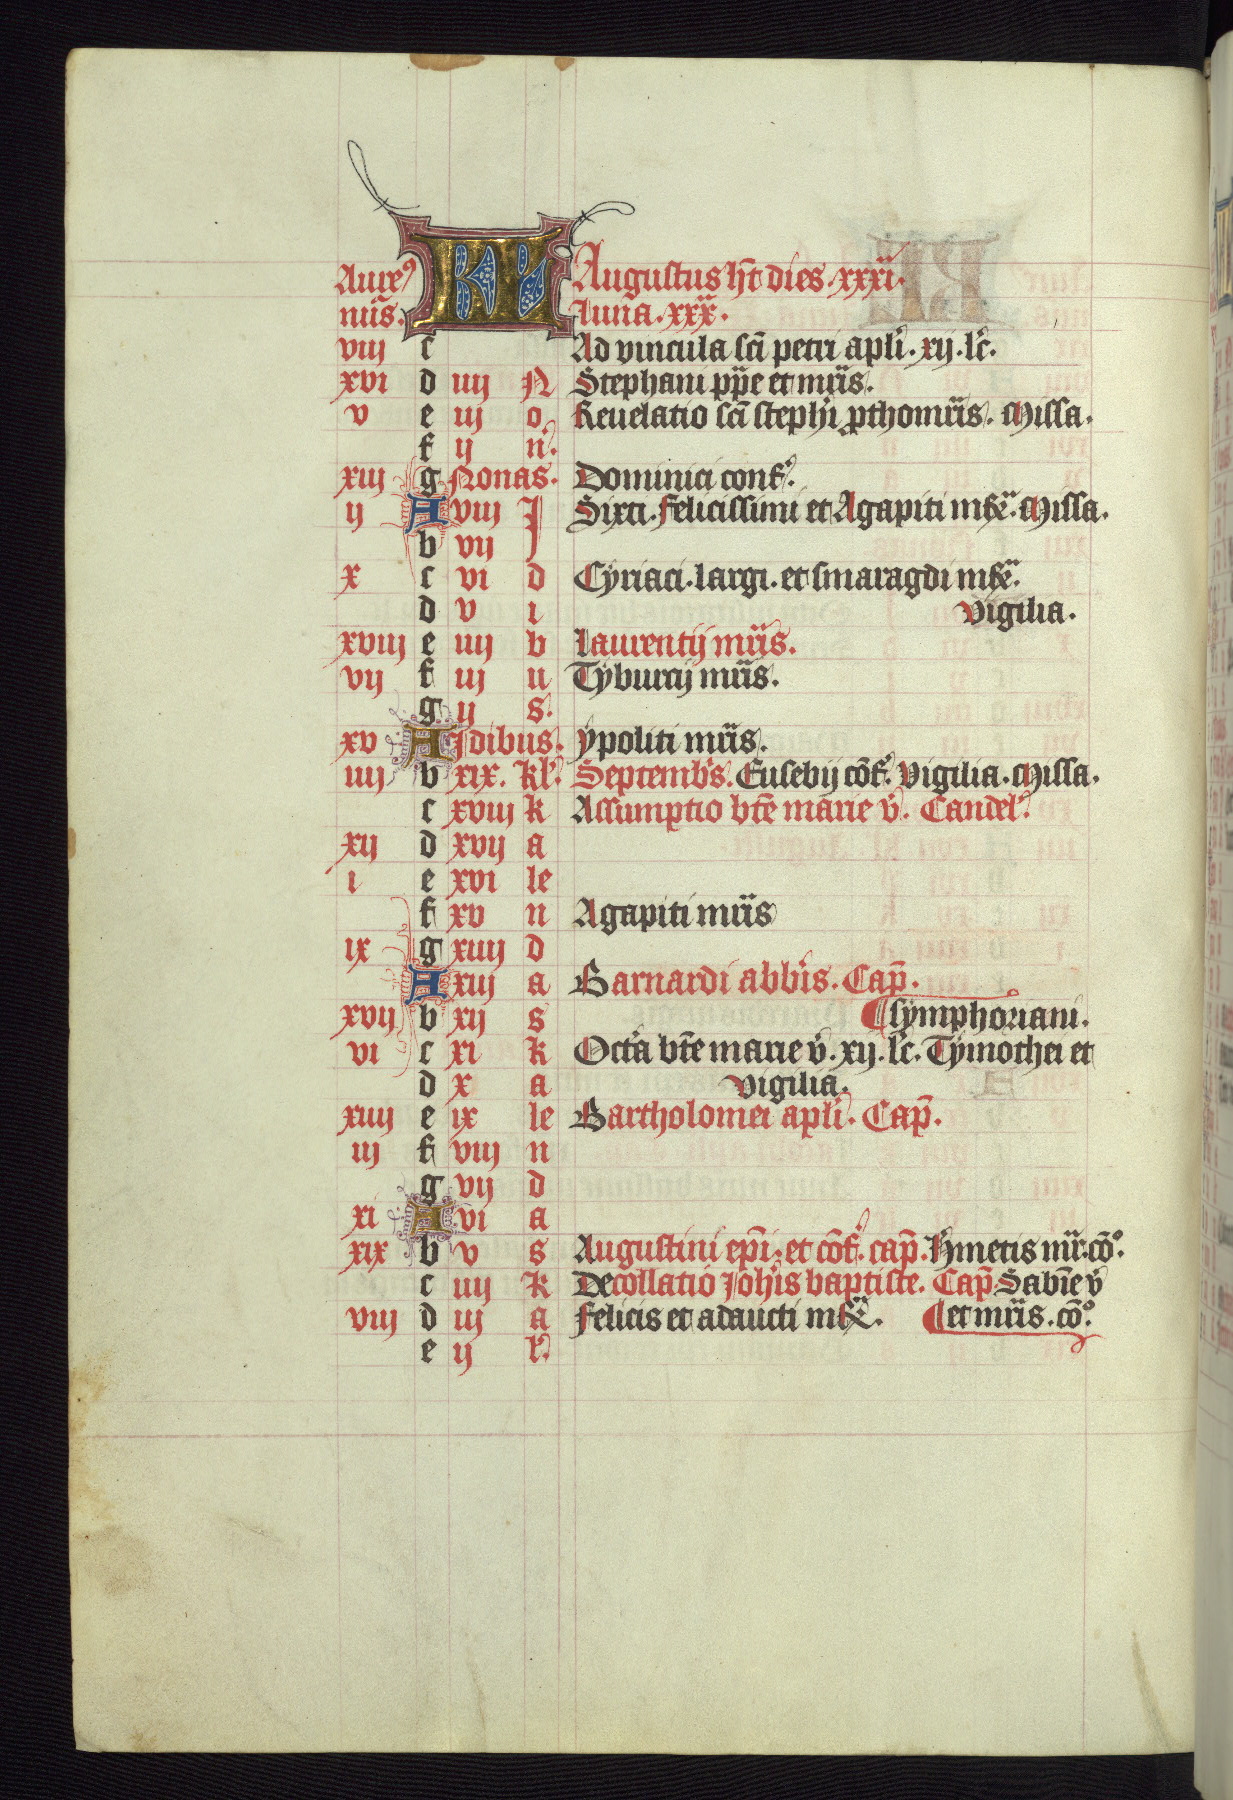 Aure⁹ KL Augustus ht̄ dies. xxxi.
nūs. luna. xxx.
viij c Ad vincula sc̄i petri apl̄i. xij. lc̄.
xvi d iiij N Stephani pp̄e et mr̄is.
v e iij o Reuelatio sc̄i steph̄i ꝓthomr̄is. Missa.
f ij n.
xiij g Nonas. Dominici conf.
ij A viij I Sixti. felicissimi et Agapiti mr̄. Missa.
b vij
x c vi d Cyriaci. largi. et smaragdi mr̄.
d v i Vigilia.
xviij e iiij b Laurentij mr̄is.
vij f iij u Tyburcij mr̄is.
g ij s.
xv A Idibus. ypoliti mr̄is.
iiij b xix. kl̄. Septemb̄s. Eusebij cōf. Vigilia. Missa.
c xviij k Assumptio bt̄e marie v̄. Candel.
xij d xvij a
i e xvi le
f xv n Agapiti mr̄is
ix g xiiij d
A xiij a Barnardi abb̄is. Cap̄.
xvij b xij s ¶ symphoriani.
vi c xi k Octā bt̄e marie v̄. xij. lc̄. Tymothei et
d x a Vigilia.
xiiij e ix le Bartholomei apl̄i. Cap̄.
iij f viij n
g vij d
xi A vi a
xix b v s Augustini ep̄i. et cōf. cap̄. hmetis mr̄. cō⁰.
c iiij k Decollatio Joh̄is baptiste. Cap̄. Sabīe v̄
viij d iij a felicis et adaucti mr̄. ¶ et mr̄is. cō⁰.
e ij l̄.